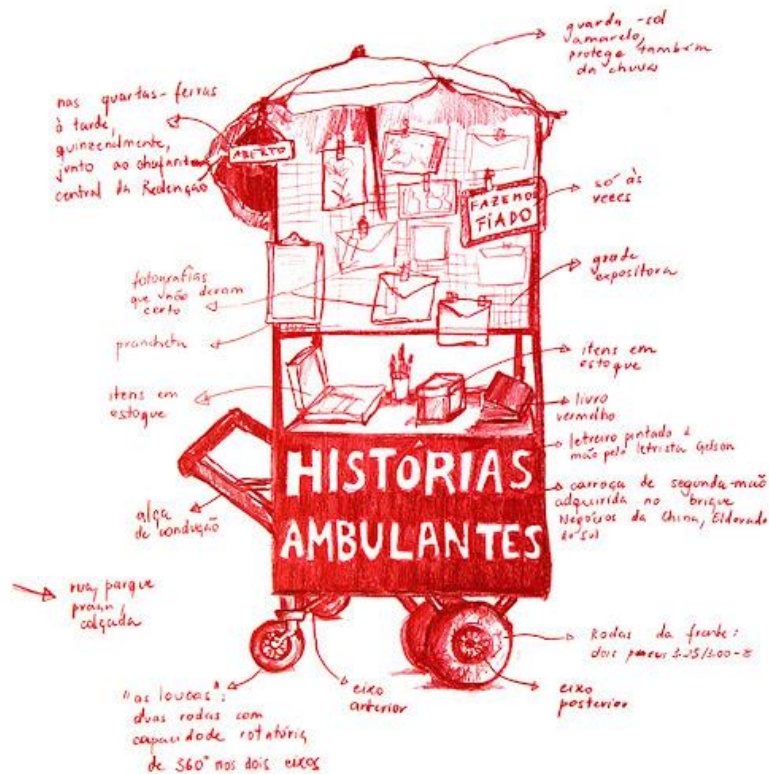 guarda-sol
amarelo,
protege também
da chuva
nas quartas-feiras
à tarde,
quinzenalmente,
junto ao chafariz
central da Redenção
ABERTO
FAZEMO
FIADO
só às
vezes
grade
expositora
fotografias
que não deram
certo
prancheta
itens em
estoque
itens em
estoque
livro
vermelho
letreiro pintado à
mão pelo letrista Gelson
HISTÓRIAS
AMBULANTES
carroça de segunda-mão
adquirida no brique
Negócios da China, Eldorado
do Sul
alça
de condução
rua, parque
praça,
calçada
Rodas da frente:
dois pneus 3.25/3.00-8
"as loucas":
duas rodas com
capacidade rotatória
de 360° nos dois eixos
eixo
anterior
eixo
posterior